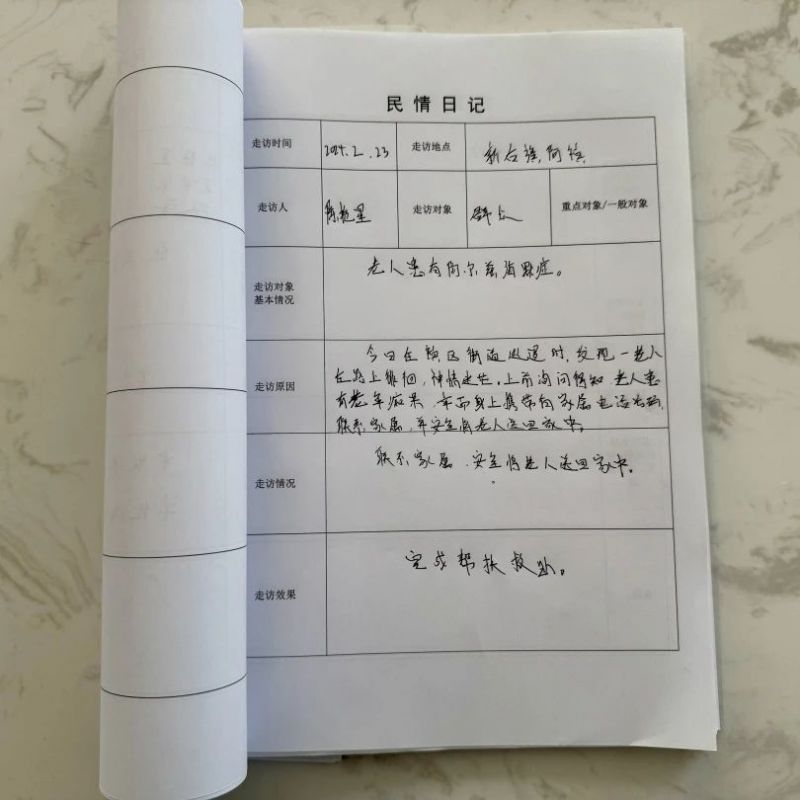 民情日记
走访时间 2024.2.23 走访地点 新右旗阿镇
走访人 走访对象 重点对象/一般对象
走访对象
基本情况
老人患有阿尔兹海默症。
走访原因
今日在辖区街面巡逻时,发现一老人
在路上徘徊,神情迷茫,上前询问得知 老人患
有老年痴呆,幸而身上携带有家属电话号码,
联系家属,并安全将老人送回家中。
走访情况
联系家属,安全将老人送回家中。
走访效果
完成帮扶救助。